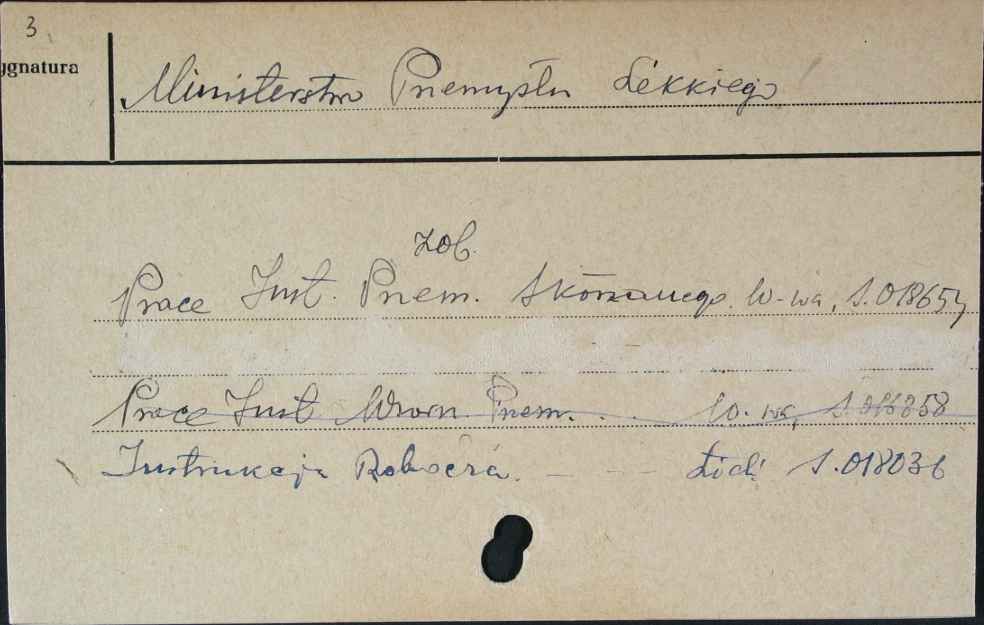 3
ygnatura
Ministerstwo Przemysłu Lekkiego
zob.
Prace Inst. Przem. Skórzanego. W-wa, S.018654
Prace Inst Wzorn. Przem. . . W-wa, S.016858
Instrukcja Robocza. — — Łódź S.018036